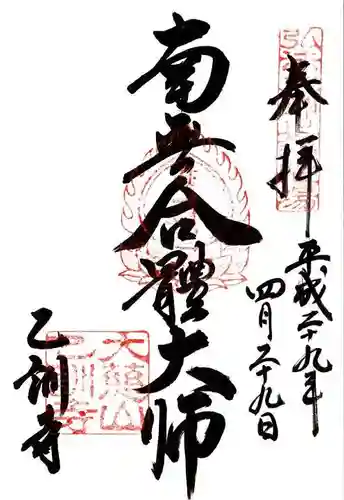 奉拝
平成二十九年
四月二十九日
南無合體大师
乙訓寺
大慈山
乙訓寺